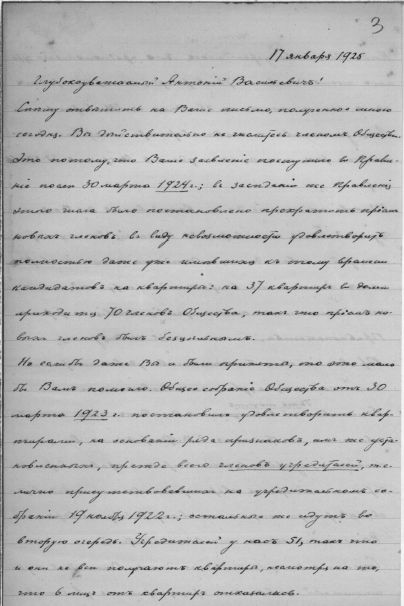 3
17 января 1925
Глубокоуважаемый Антоній Васильевичъ!
Спѣшу отвѣтить на Ваше письмо, полученное мною
сегодня. Вы дѣйствительно не числитесь членомъ Общества.
Это потому, что Ваше заявленіе поступило въ Правле-
ніе послѣ 30 марта 1924 г.; въ засѣданіи же Правленія
этого числа было постановлено прекратить пріемъ
новыхъ членовъ въ виду невозможности удовлетворить
полностью даже уже имѣвшихся къ тому времени
кандидатовъ на квартиры: на 37 квартиръ въ домѣ
приходится 70 членовъ Общества, такъ что пріемъ но-
выхъ членовъ былъ безцѣльнымъ.
Но если бы даже Вы и были приняты, то это мало
бы Вамъ помогло. Общее собраніе Общества отъ 30
марта 1923 г. постановило удовлетворить квар-
тирами, на основаніи ряда признаковъ, имъ же уста-
новленныхъ, прежде всего членовъ учредителей, т.е.
лично присутствовавшихъ на учредительномъ со-
браніи 19 нояб. 1922 г.; остальные же идутъ во
вторую очередь. Учредителей у насъ 51, такъ что
и они не всѣ получаютъ квартиры, несмотря на то,
что 6 лицъ отъ квартиръ отказались.